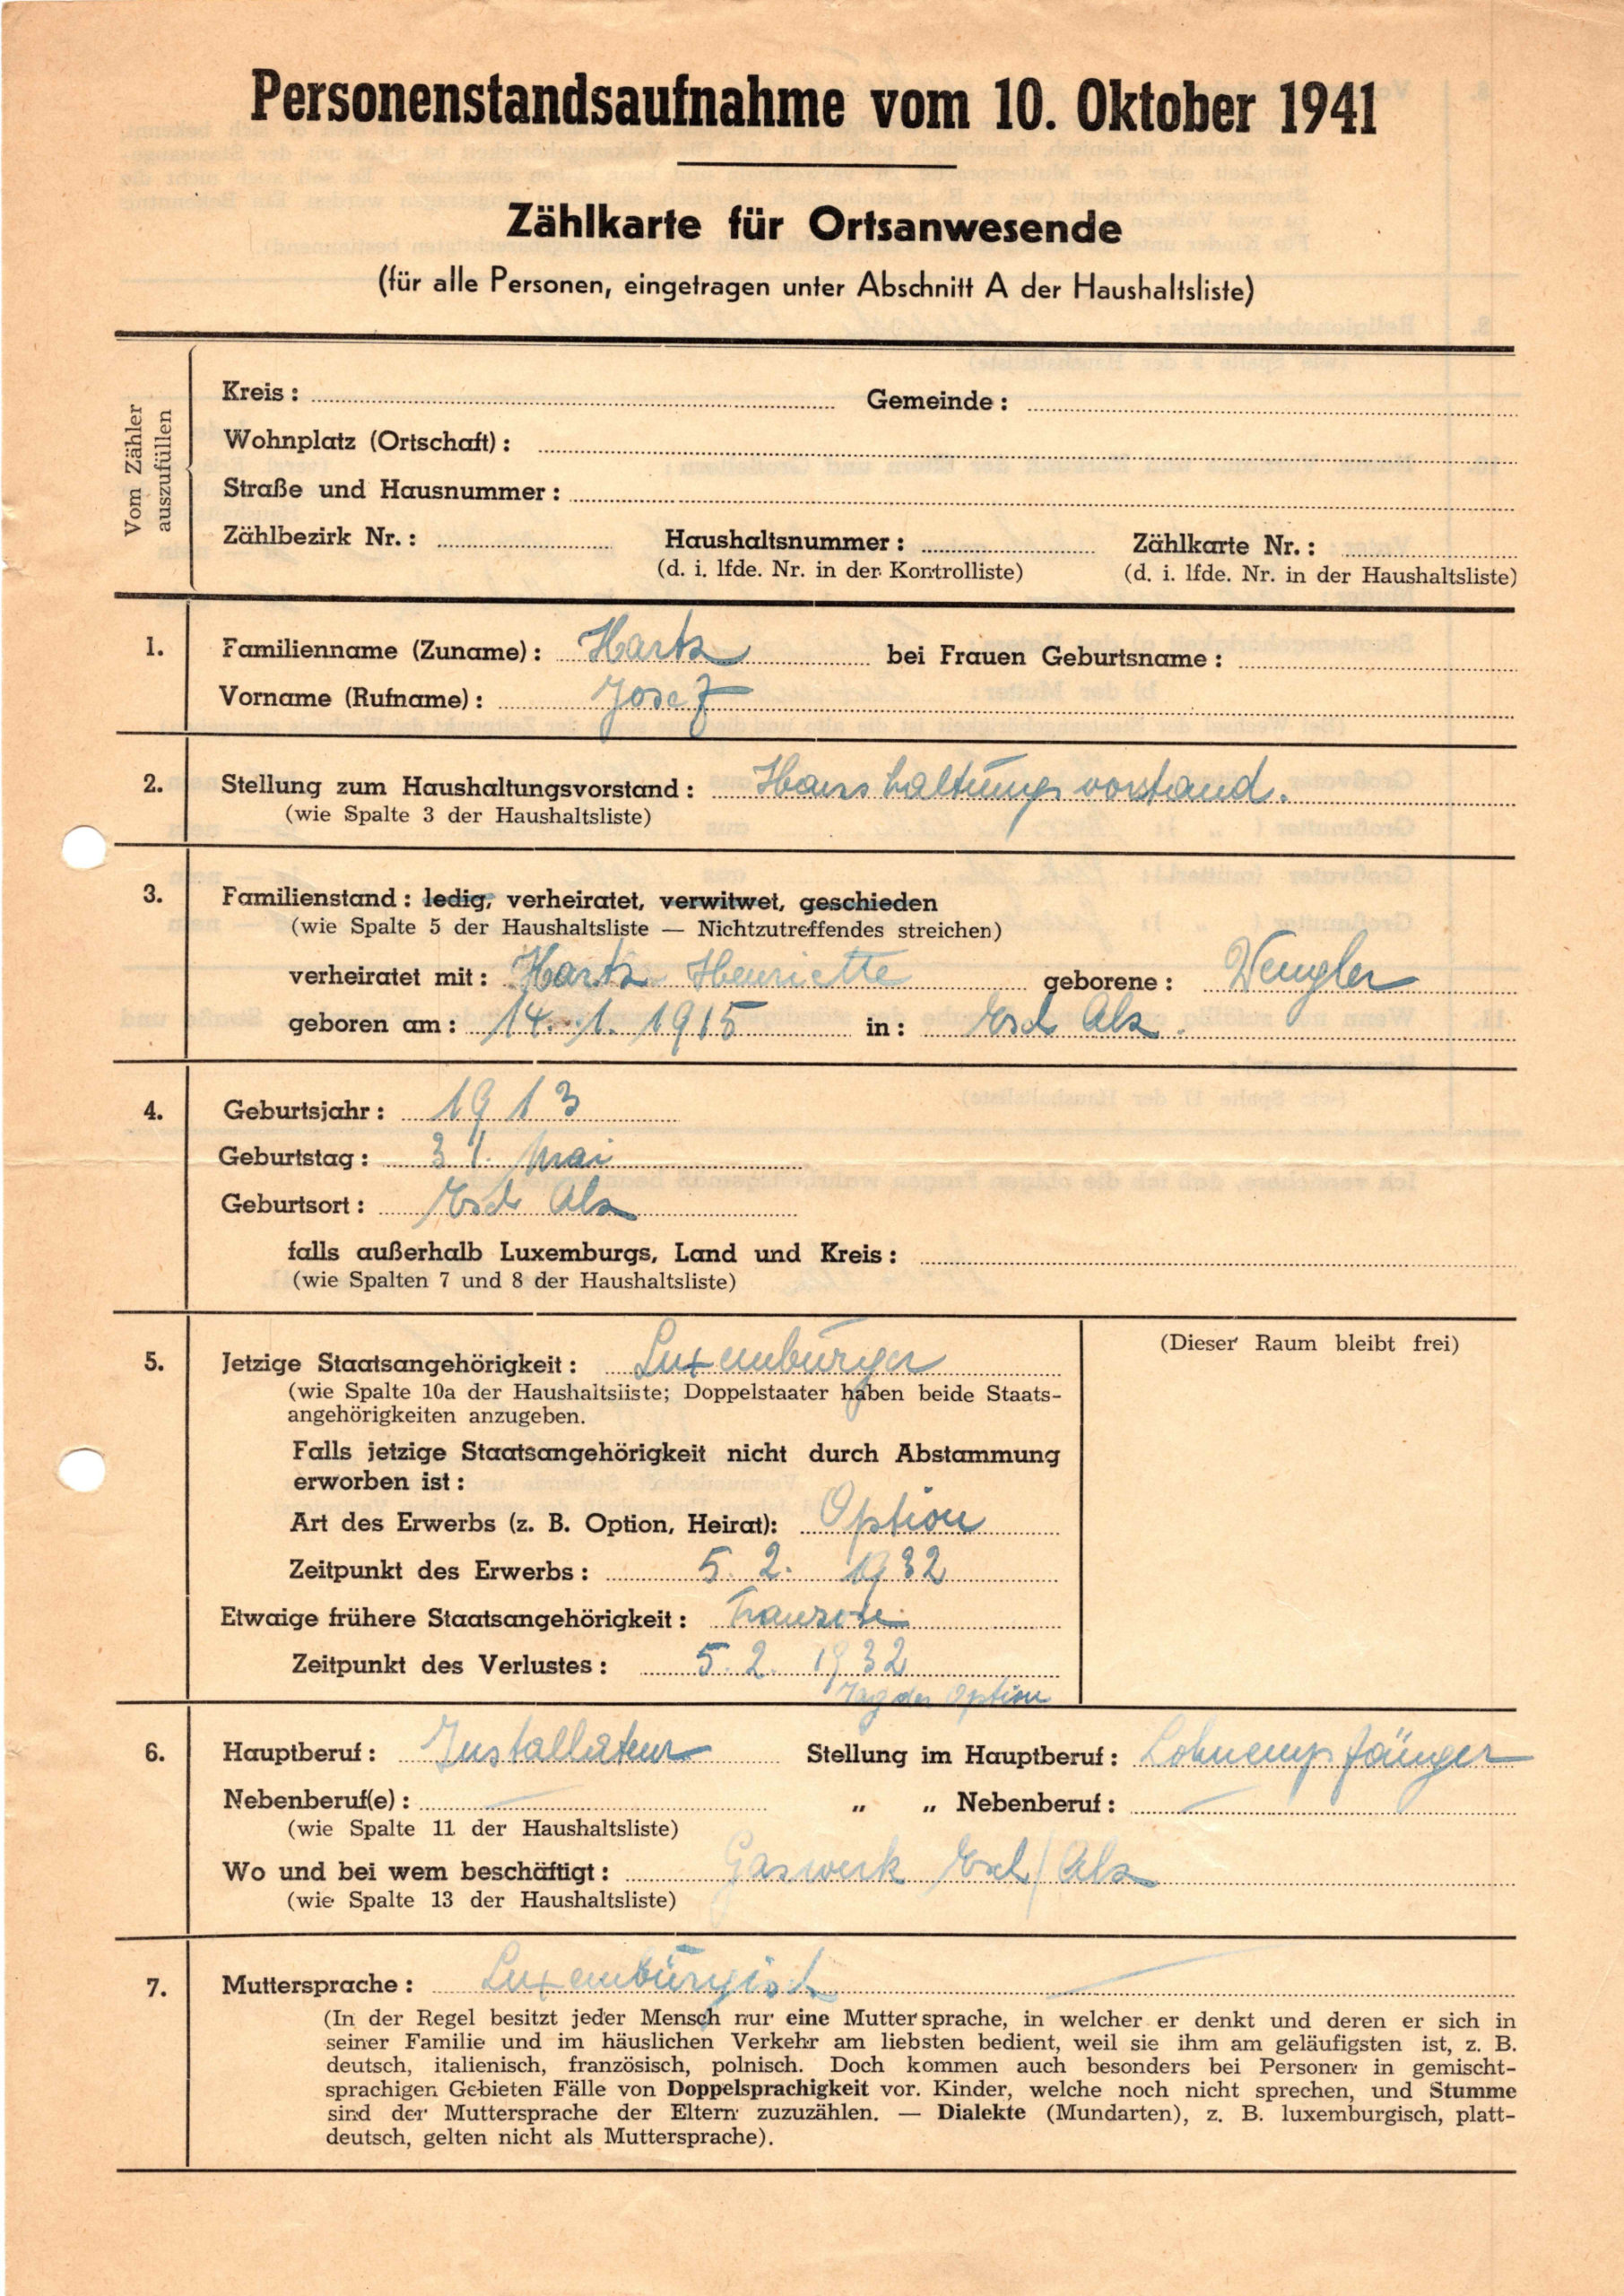 Personenstandsaufnahme vom 10. Oktober 1941
Zählkarte für Ortsanwesende
(für alle Personen, eingetragen unter Abschnitt A der Haushaltsliste)
Vom Zähler
auszufüllen
Kreis : Gemeinde :
Wohnplatz (Ortschaft) :
Straße und Hausnummer :
Zählbezirk Nr. : Haushaltsnummer : Zählkarte Nr. :
(d. i. lfde. Nr. in der Kontrolliste) (d. i. lfde. Nr. in der Haushaltsliste)
1. Familienname (Zuname) : Hartz bei Frauen Geburtsname :
Vorname (Rufname) : Josef
2. Stellung zum Haushaltungsvorstand : Haushaltungsvorstand.
(wie Spalte 3 der Haushaltsliste)
3. Familienstand : ledig, verheiratet, verwitwet, geschieden
(wie Spalte 5 der Haushaltsliste — Nichtzutreffendes streichen)
verheiratet mit : Hartz Henriette geborene : Wengler
geboren am : 14. 1. 1915 in : Esch Alz.
4. Geburtsjahr : 1913
Geburtstag : 31. Mai
Geburtsort : Esch Alz
falls außerhalb Luxemburgs, Land und Kreis :
(wie Spalten 7 und 8 der Haushaltsliste)
5. Jetzige Staatsangehörigkeit : Luxemburger
(wie Spalte 10a der Haushaltsliste; Doppelstaater haben beide Staats-
angehörigkeiten anzugeben.
Falls jetzige Staatsangehörigkeit nicht durch Abstammung
erworben ist :
Art des Erwerbs (z. B. Option, Heirat): Option
Zeitpunkt des Erwerbs : 5. 2. 1932
Etwaige frühere Staatsangehörigkeit : Franzose
Zeitpunkt des Verlustes : 5. 2. 1932
Tag der Option
(Dieser Raum bleibt frei)
6. Hauptberuf : Installateur Stellung im Hauptberuf : Lohnempfänger
Nebenberuf(e) : — „ „ Nebenberuf : —
(wie Spalte 11 der Haushaltsliste)
Wo und bei wem beschäftigt : Gaswerk Esch/Alz
(wie Spalte 13 der Haushaltsliste)
7. Muttersprache : Luxemburgisch —
(In der Regel besitzt jeder Mensch nur eine Muttersprache, in welcher er denkt und deren er sich in
seiner Familie und im häuslichen Verkehr am liebsten bedient, weil sie ihm am geläufigsten ist, z. B.
deutsch, italienisch, französisch, polnisch. Doch kommen auch besonders bei Personen in gemischt-
sprachigen Gebieten Fälle von Doppelsprachigkeit vor. Kinder, welche noch nicht sprechen, und Stumme
sind der Muttersprache der Eltern zuzuzählen. — Dialekte (Mundarten), z. B. luxemburgisch, platt-
deutsch, gelten nicht als Muttersprache).